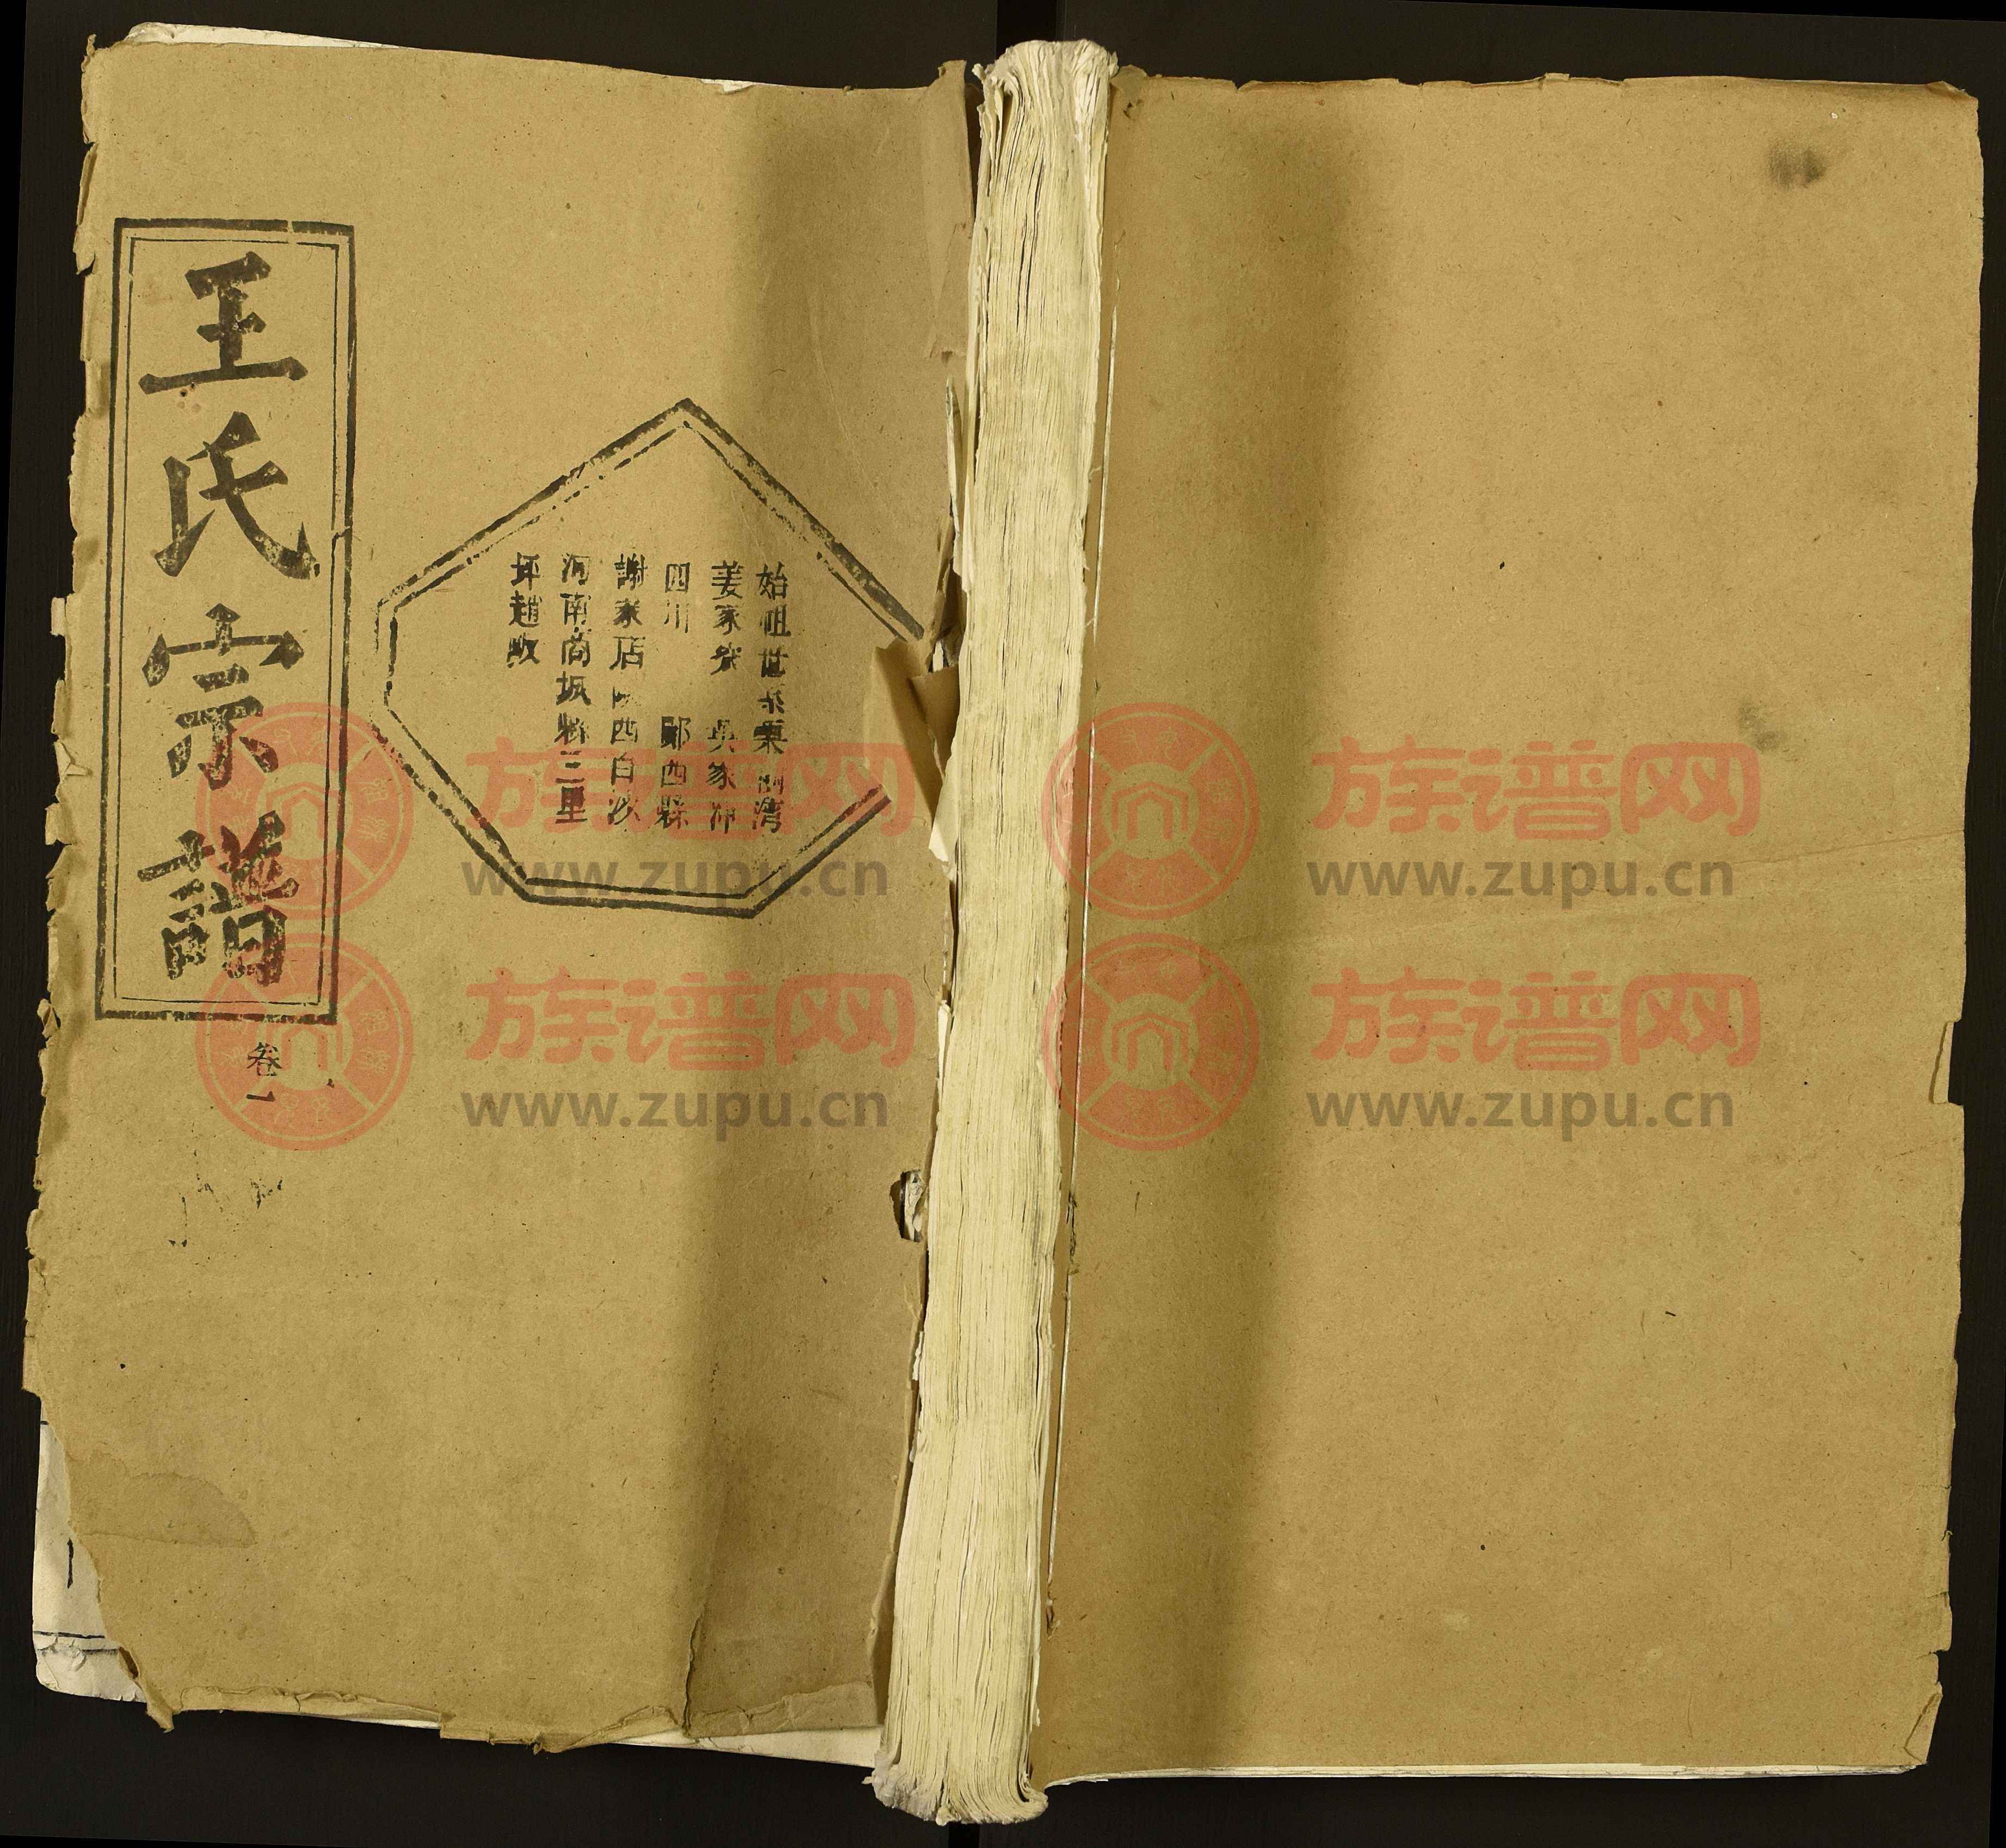 王氏宗譜
卷一
始祖世系栗樹湾
姜家岽 吳家冲
四川 鄖西縣
謝家店陕西白沙
河南商城縣三里
坪趙畈
族谱网
www.zupu.cn
族谱网
www.zupu.cn
族谱网
www.zupu.cn
族谱网
www.zupu.cn